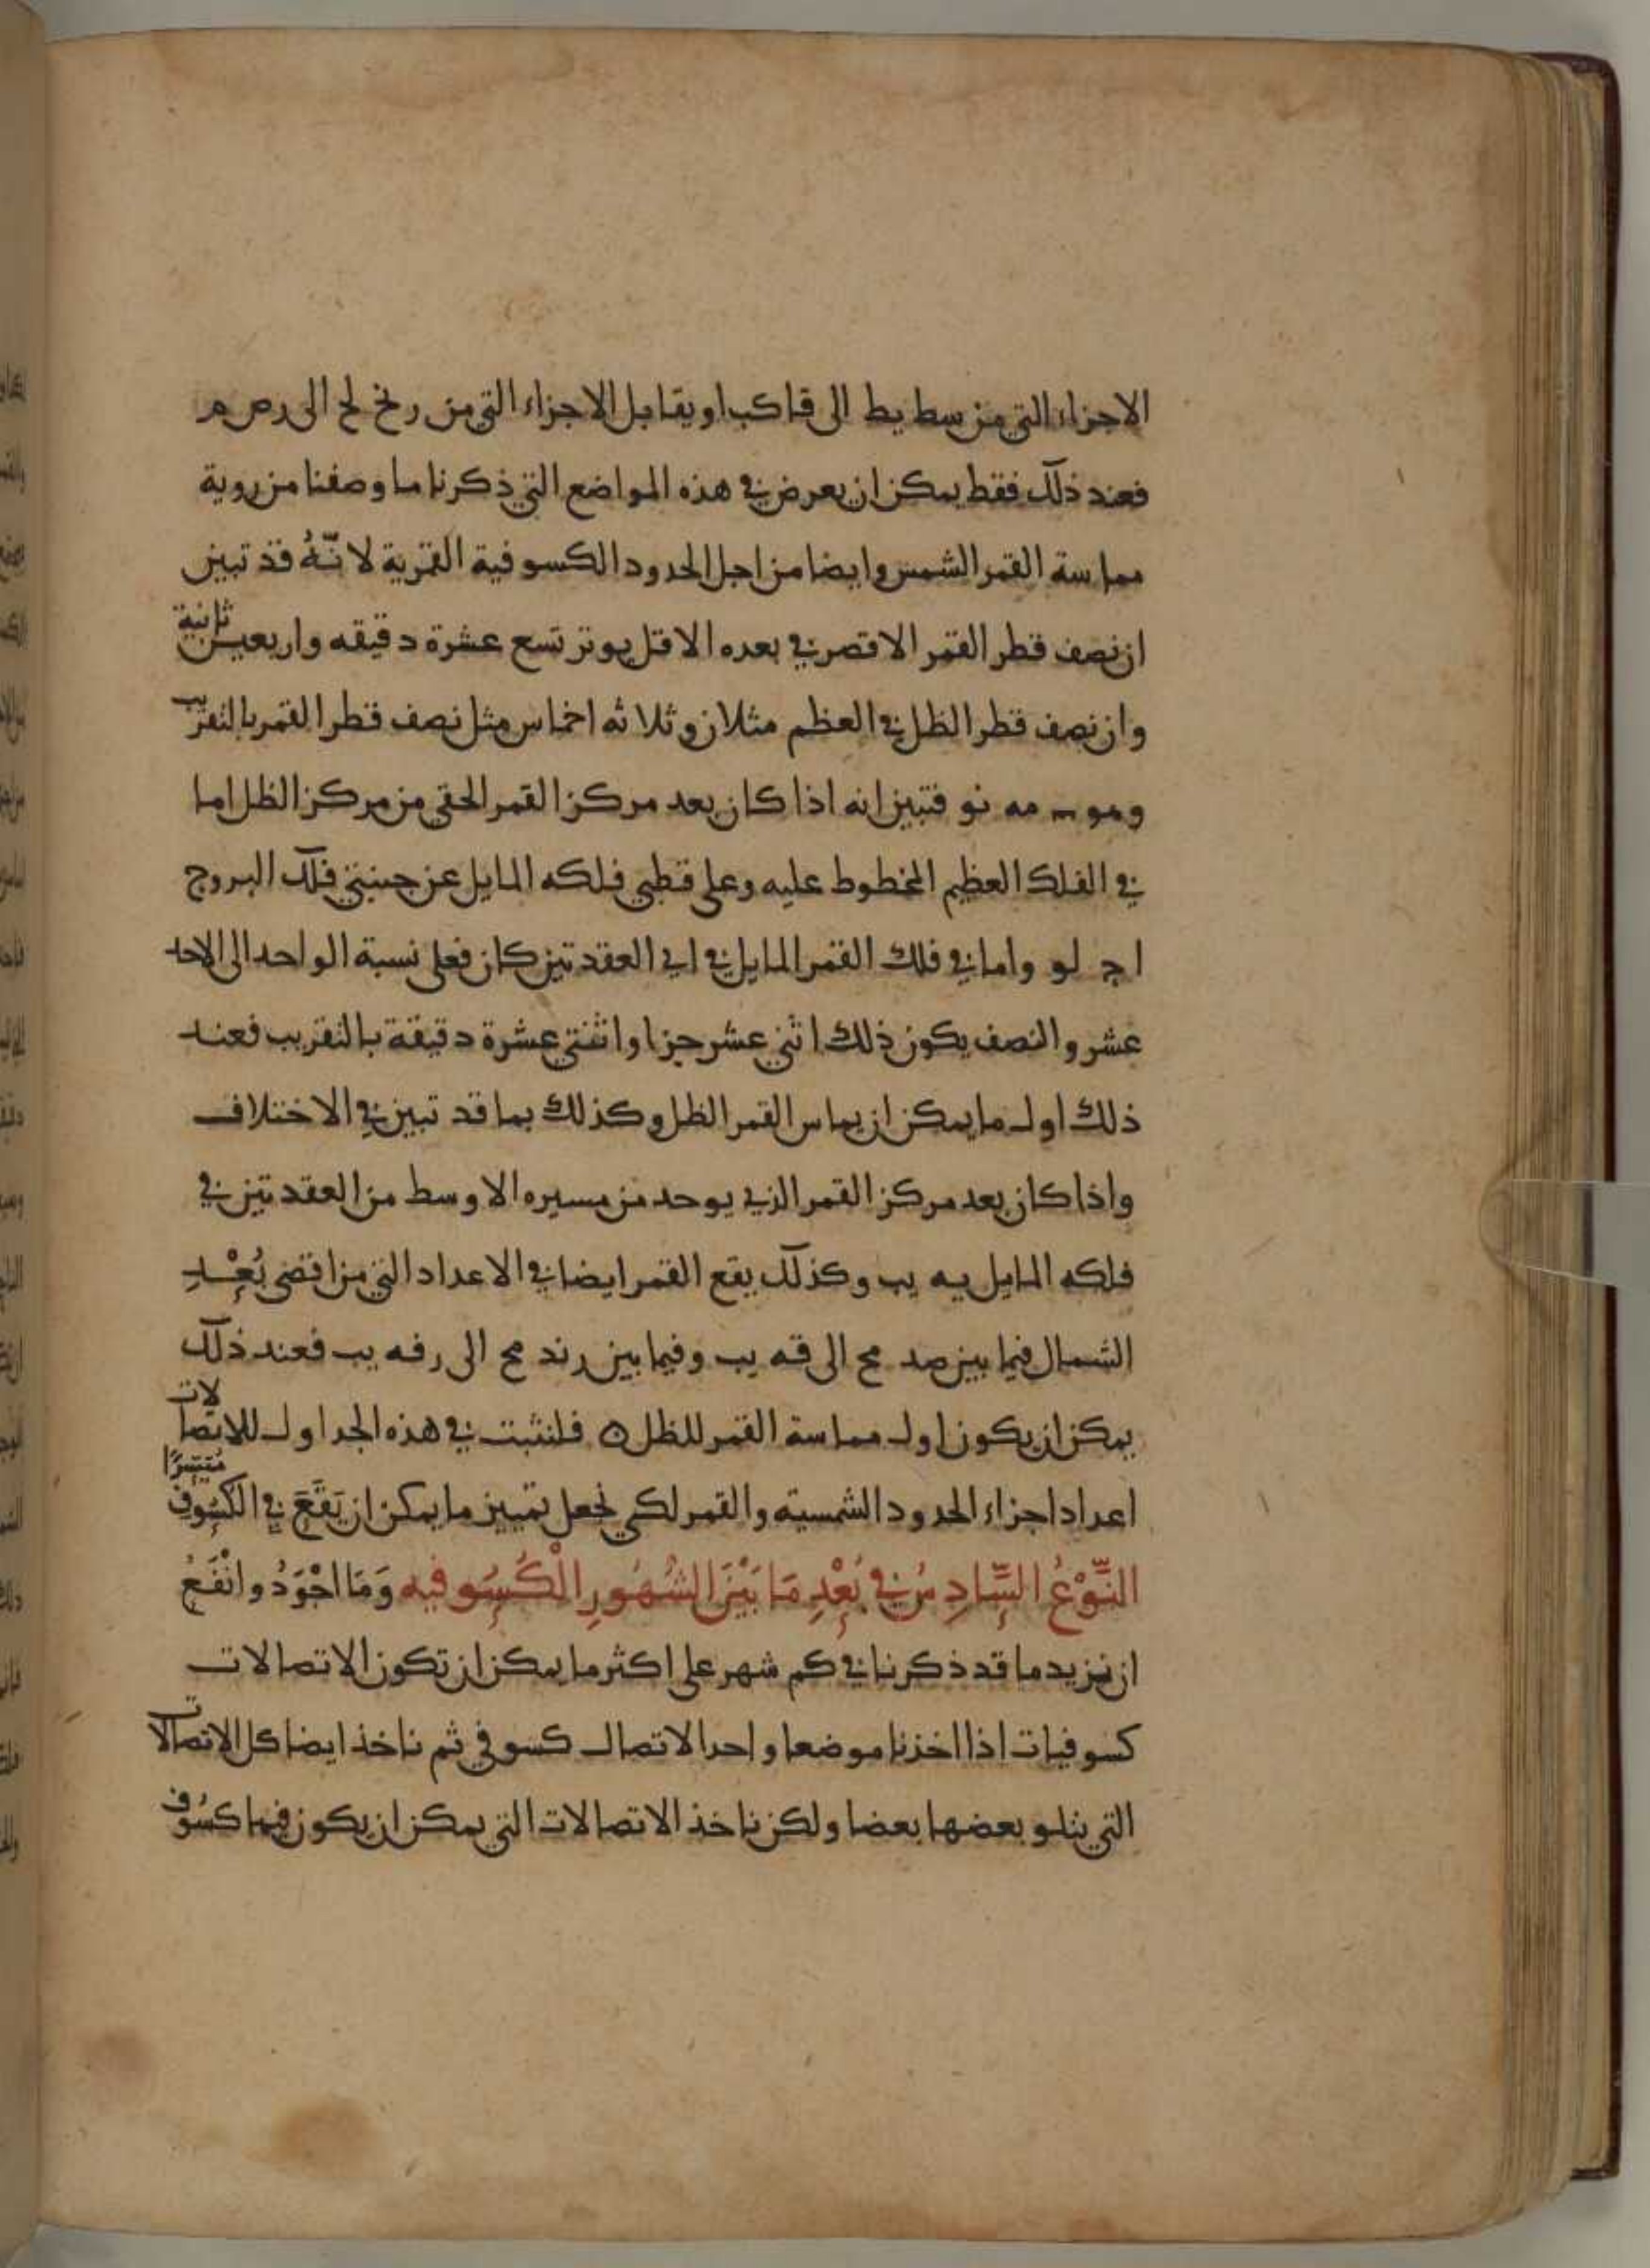 الاجزاء التي من سط يط الى قا كب او يقابل الاجزاء التي من رنح لح الى رص م
فعند ذلك فقط يمكن ان يعرض في هذه المواضع التي ذكرنا ما وصفنا من روية
مماسة القمر الشمس وايضا من اجل الحدود الكسوفية القمرية لانّهُ قد تبين
ان نصف قطر القمر الاقصر في بعده الاقل يوتر تسع عشرة دقيقه واربعين ثانية
وان نصف قطر الظل في العظم مثلان وثلاثه اخماس مثل نصف قطر القمر بالتقريب
وهو مه نو فتبين انه اذا كان بعد مركز القمر الحقي من مركز الظل اما
في الفلك العظيم المخطوط عليه وعلى قطبي فلكه المايل عن جنبتي فلك البروج
ا ج لو واما في فلك القمر المايل في اي العقدتين كان فعلى نسبة الواحد الى الاحد
عشر والنصف يكون ذلك اثني عشر جزا واثنتي عشرة دقيقة بالتقريب فعند
ذلك اول ما يمكن ان يماس القمر الظل وكذلك بما قد تبين في الاختلاف
واذا كان بعد مركز القمر الذي يوحد من مسيره الاوسط من العقدتين في
فلكه المايل يه يب وكذلك يقع القمر ايضا في الاعداد التي من اقصى بُعْدِ
الشمال فيما بين صد مح الى قه يب وفيما بين رند مح الى رفه يب فعند ذلك
يمكن ان يكون اول مماسة القمر للظل ه فلنثبت في هذه الجداول للاتصالات
اعداد اجزاء الحدود الشمسيته والقمر لكي نجعل تمييز ما يمكن ان يَقَعَ في الكسُوفِ مُتيَسِّرًا
النَّوْعُ السَّادِسُ في بُعْدِ مَا بَيْنَ الشُهُورِ الْكُسُوفيه وَمَا اجْوَدُ وانْفَعُ
ان نزيد ما قد ذكرنا في كم شهر على اكثر ما يمكن ان تكون الاتصالات
كسوفيات اذا اخذنا موضعا واحد الاتصال كسوفي ثم ناخذ ايضا كل الاتصالات
التي يتلو بعضها بعضا ولكن ناخذ الاتصالات التي يمكن ان يكون فيها كسُوف